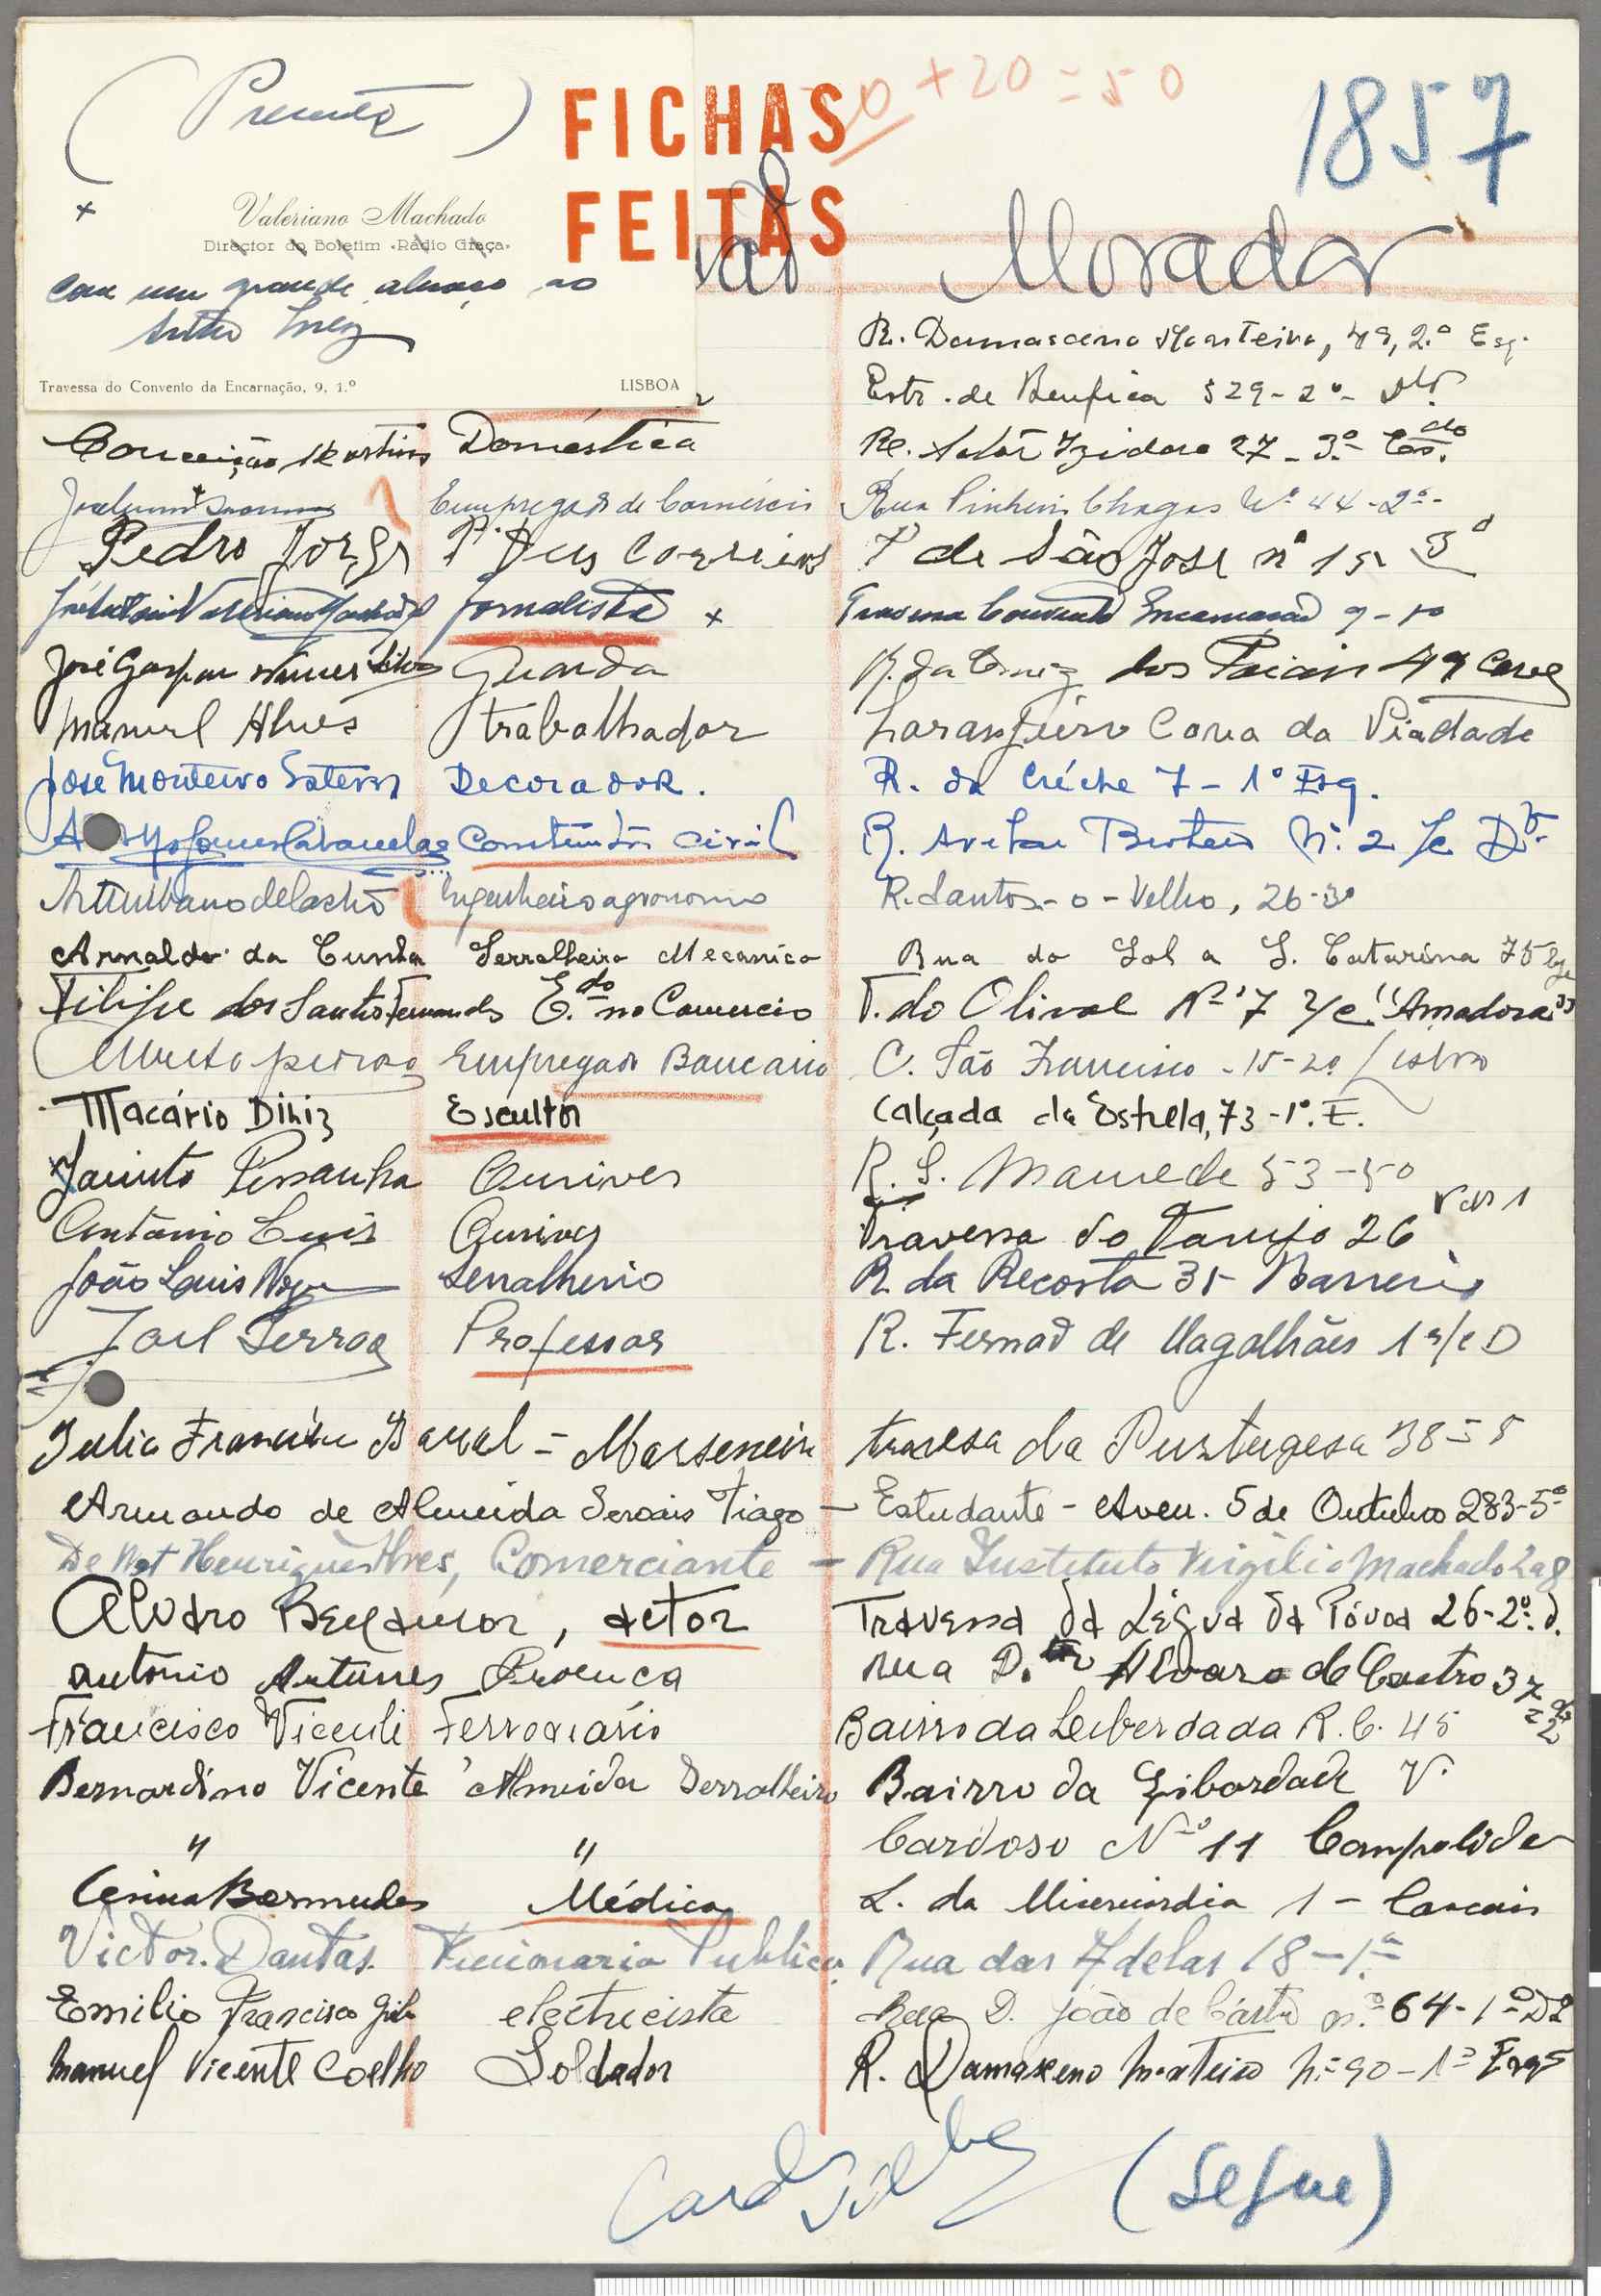 (Presente)
FICHAS
FEITAS
+20=50
1857
Valeriano Machado
Director do Boletim «Rádio Graça»
com um grande abraço ao
Travessa do Convento da Encarnação, 9, 1.º LISBOA
Morada
R. Damasceno Monteiro, 49, 2.º Esq.
Estr. de Benfica 529-2º- Dtº
Conceição Martins Doméstica R. Actôr Izidoro 27-3.º Esq.do
Empregado de Comércio Rua Pinheiro Chagas Nº 44-2º-
Pedro Jorge Correios T. de São José nº 15 3º
Valeriano Machado Jornalista x Travessa Convento Encarnação 9-1º
José Gaspar Nunes Silva Guarda R. da Cruz dos Poiais 49 Cave
Manuel Alves trabalhador Laranjeiro Cova da Piadade
José Monteiro Esteves Decorador. R. da Créche 7-1º Esq.
Construtor civil R. Avelar Brotero Nº 2
Engenheiro agronomo R. Santos-o-Velho, 26-3º
Arnaldo da Cunha Serralheiro Mecanico Rua do Sol a S. Catarina 75
Filipe dos Santos Fernandes E.do no Comercio T. do Olival Nº 7 r/c "Amadora"
Empregado Bancario C. São Francisco - 15-2º Lisboa
Macário Diniz Escultor Calçada da Estrela, 73-1º. E.
Jacinto Pessanha Ourives R. S. Mamede 53-5º
António Luis Ourives Travessa do Tarujo 26
João Louis Serralheiro R. da Recosta 35 Barreiro
Joel Serrão Professor R. Fernão de Magalhães 1 r/c D
Julio Francisco Barral - Marseneiro travesa da Purtugesa 38=5
Armando de Almeida Gervais Tiago - Estudante - Aven. 5 de Outubro 283-5º
Henrique Alves, Comerciante - Rua Instituto Virgilio Machado 2 a 8
Alvaro Benamor, actor Travessa da Légua da Póvoa 26-2º. d.
António Antunes Proença rua D.tor Alvaro de Castro 37
Francisco Ferroviário Bairro da Leiberdada R. C. 45
Bernardino Vicente Almeida Serralheiro Bairro da Libordade V.
" " Cardoso Nº 11 Campolide
Cesina Bermudes Médica L. da Misericórdia 1 - Cascais
Victor. Dantas. Funcionario Publico. Rua das Adelas 18-1º
Emilio Francisco electricista Rua D. João de Castro nº 64-1º Dº
Manuel Vicente Coelho Soldador R. Damaxeno Monteiro nº 90-1º
(Segue)